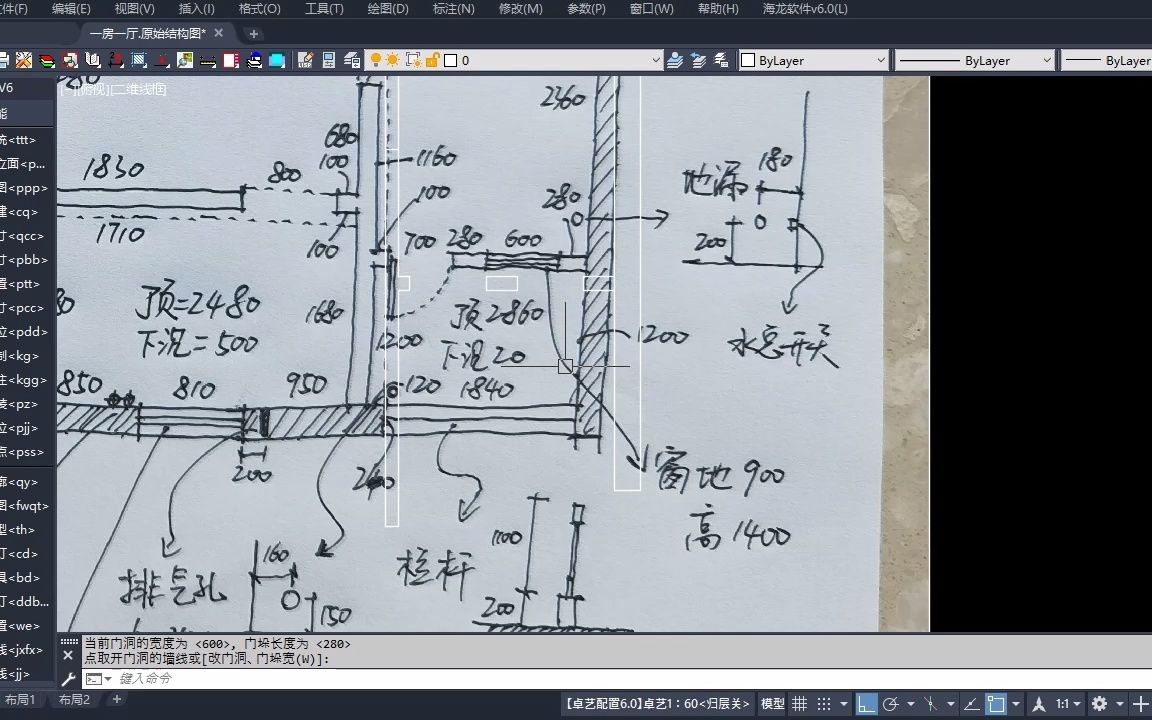 件(F) 编辑(E) 视图(V) 插入(I) 格式(O) 工具(T) 绘图(D) 标注(N) 修改(M) 参数(P) 窗口(W) 帮助(H) 海龙软件v6.0(L)
一房一厅.原始结构图*
0 ByLayer ByLayer ByLayer
V6
能
统<ttt>
立面<p...
图<ppp>
建<cq>
寸<qcc>
寸<pbb>
置<ptt>
寸<pcc>
位<pdd>
制<kg>
注<kgg>
装<pz>
位<pjj>
点<pss>
廓<qy>
图<fwqt>
型<th>
丁<cd>
具<bd>
丁<ddb...
置<we>
线<jxfx>
线<jj>
[俯视][二维线框]
2360
680
100
1160
1830
800
100
180
地漏
280
1710
100
700
280
600
200
顶=2480
下沉=500
1680
顶2860
1200
下沉20
1200
水总开关
850
810
950
120
1840
200
240
窗地900
高1400
1100
160
排气孔
栏杆
150
200
当前门洞的宽度为 <600>, 门垛长度为 <280>
点取开门洞的墙线或[改门洞、门垛宽(W)]:
键入命令
布局1 布局2
【卓艺配置6.0】卓艺1：60<归层关> 模型 1:1